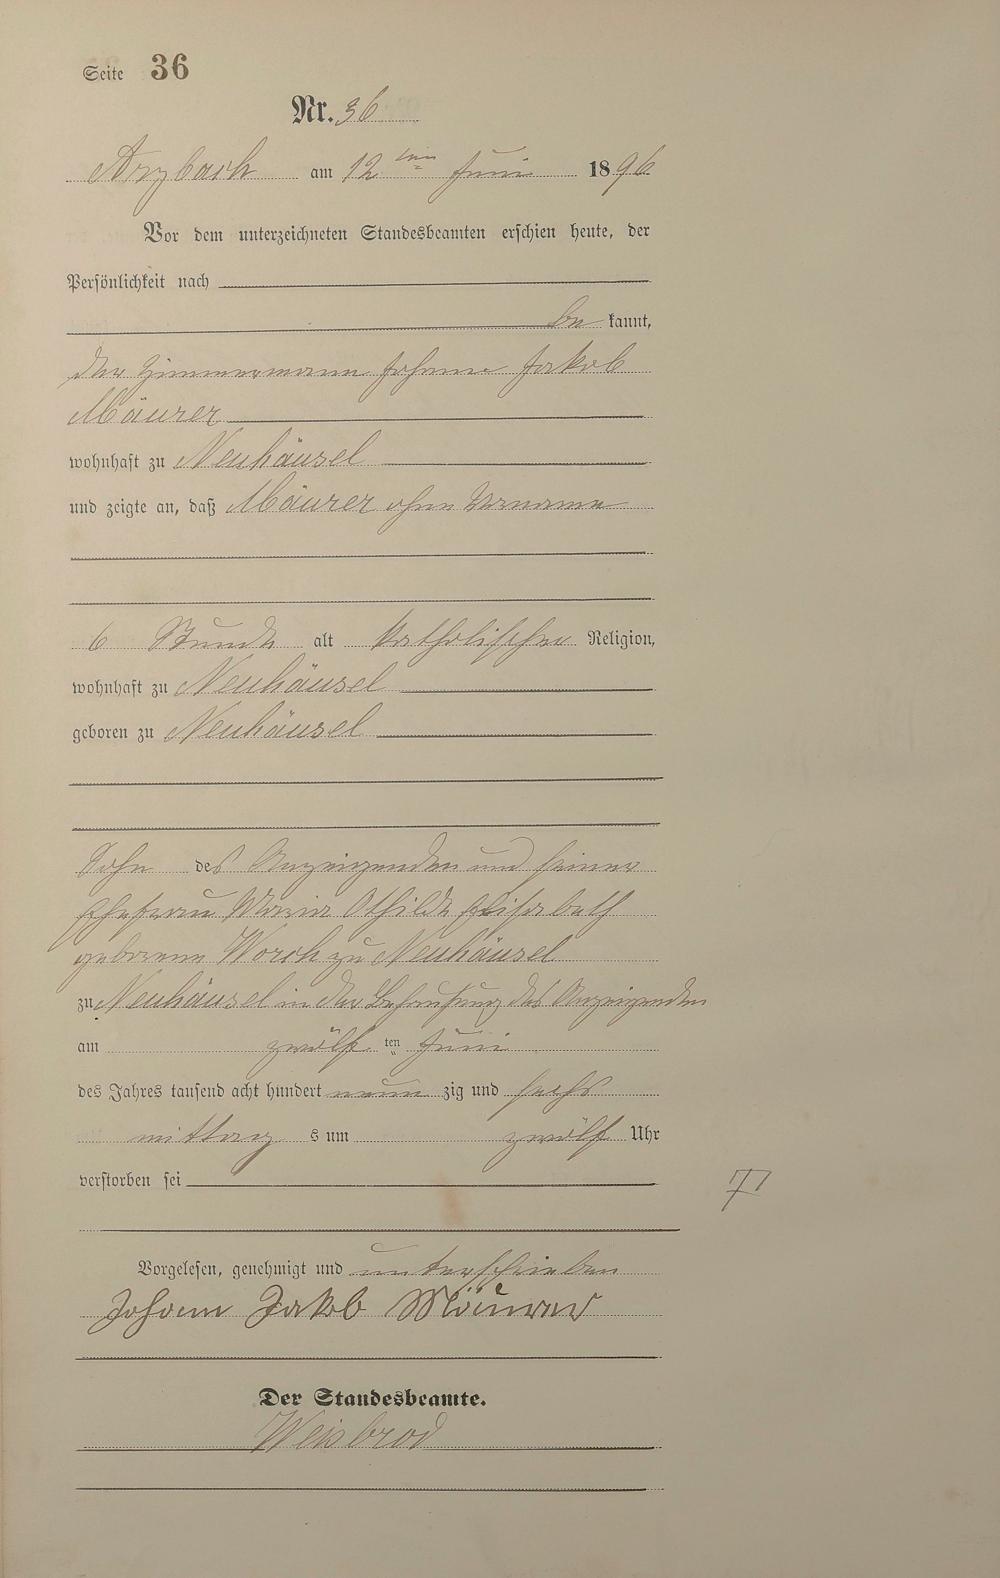 Seite 36
Nr. 36
Arzbach am 12 ten Juni 1896
Vor dem unterzeichneten Standesbeamten erschien heute, der
Persönlichkeit nach
be kannt,
der Zimmermann Johann Jakob
Mäurer
wohnhaft zu Neuhäusel
und zeigte an, daß Mäurer ohne Vorname
6 Stunde alt katholischer Religion,
wohnhaft zu Neuhäusel
geboren zu Neuhäusel
Sohn des Anzeigenden und seiner
Ehefrau Maria Othilde Elisabeth
geborene Worch zu Neuhäusel
zu Neuhäusel in der Behausung des Anzeigenden
am zwölf ten Juni
des Jahres tausend acht hundert neun zig und sechs
mittag s um zwölf Uhr
verstorben sei
Vorgelesen, genehmigt und unterschrieben
Johann Jakob Mäurer
Der Standesbeamte.
Weisbrod